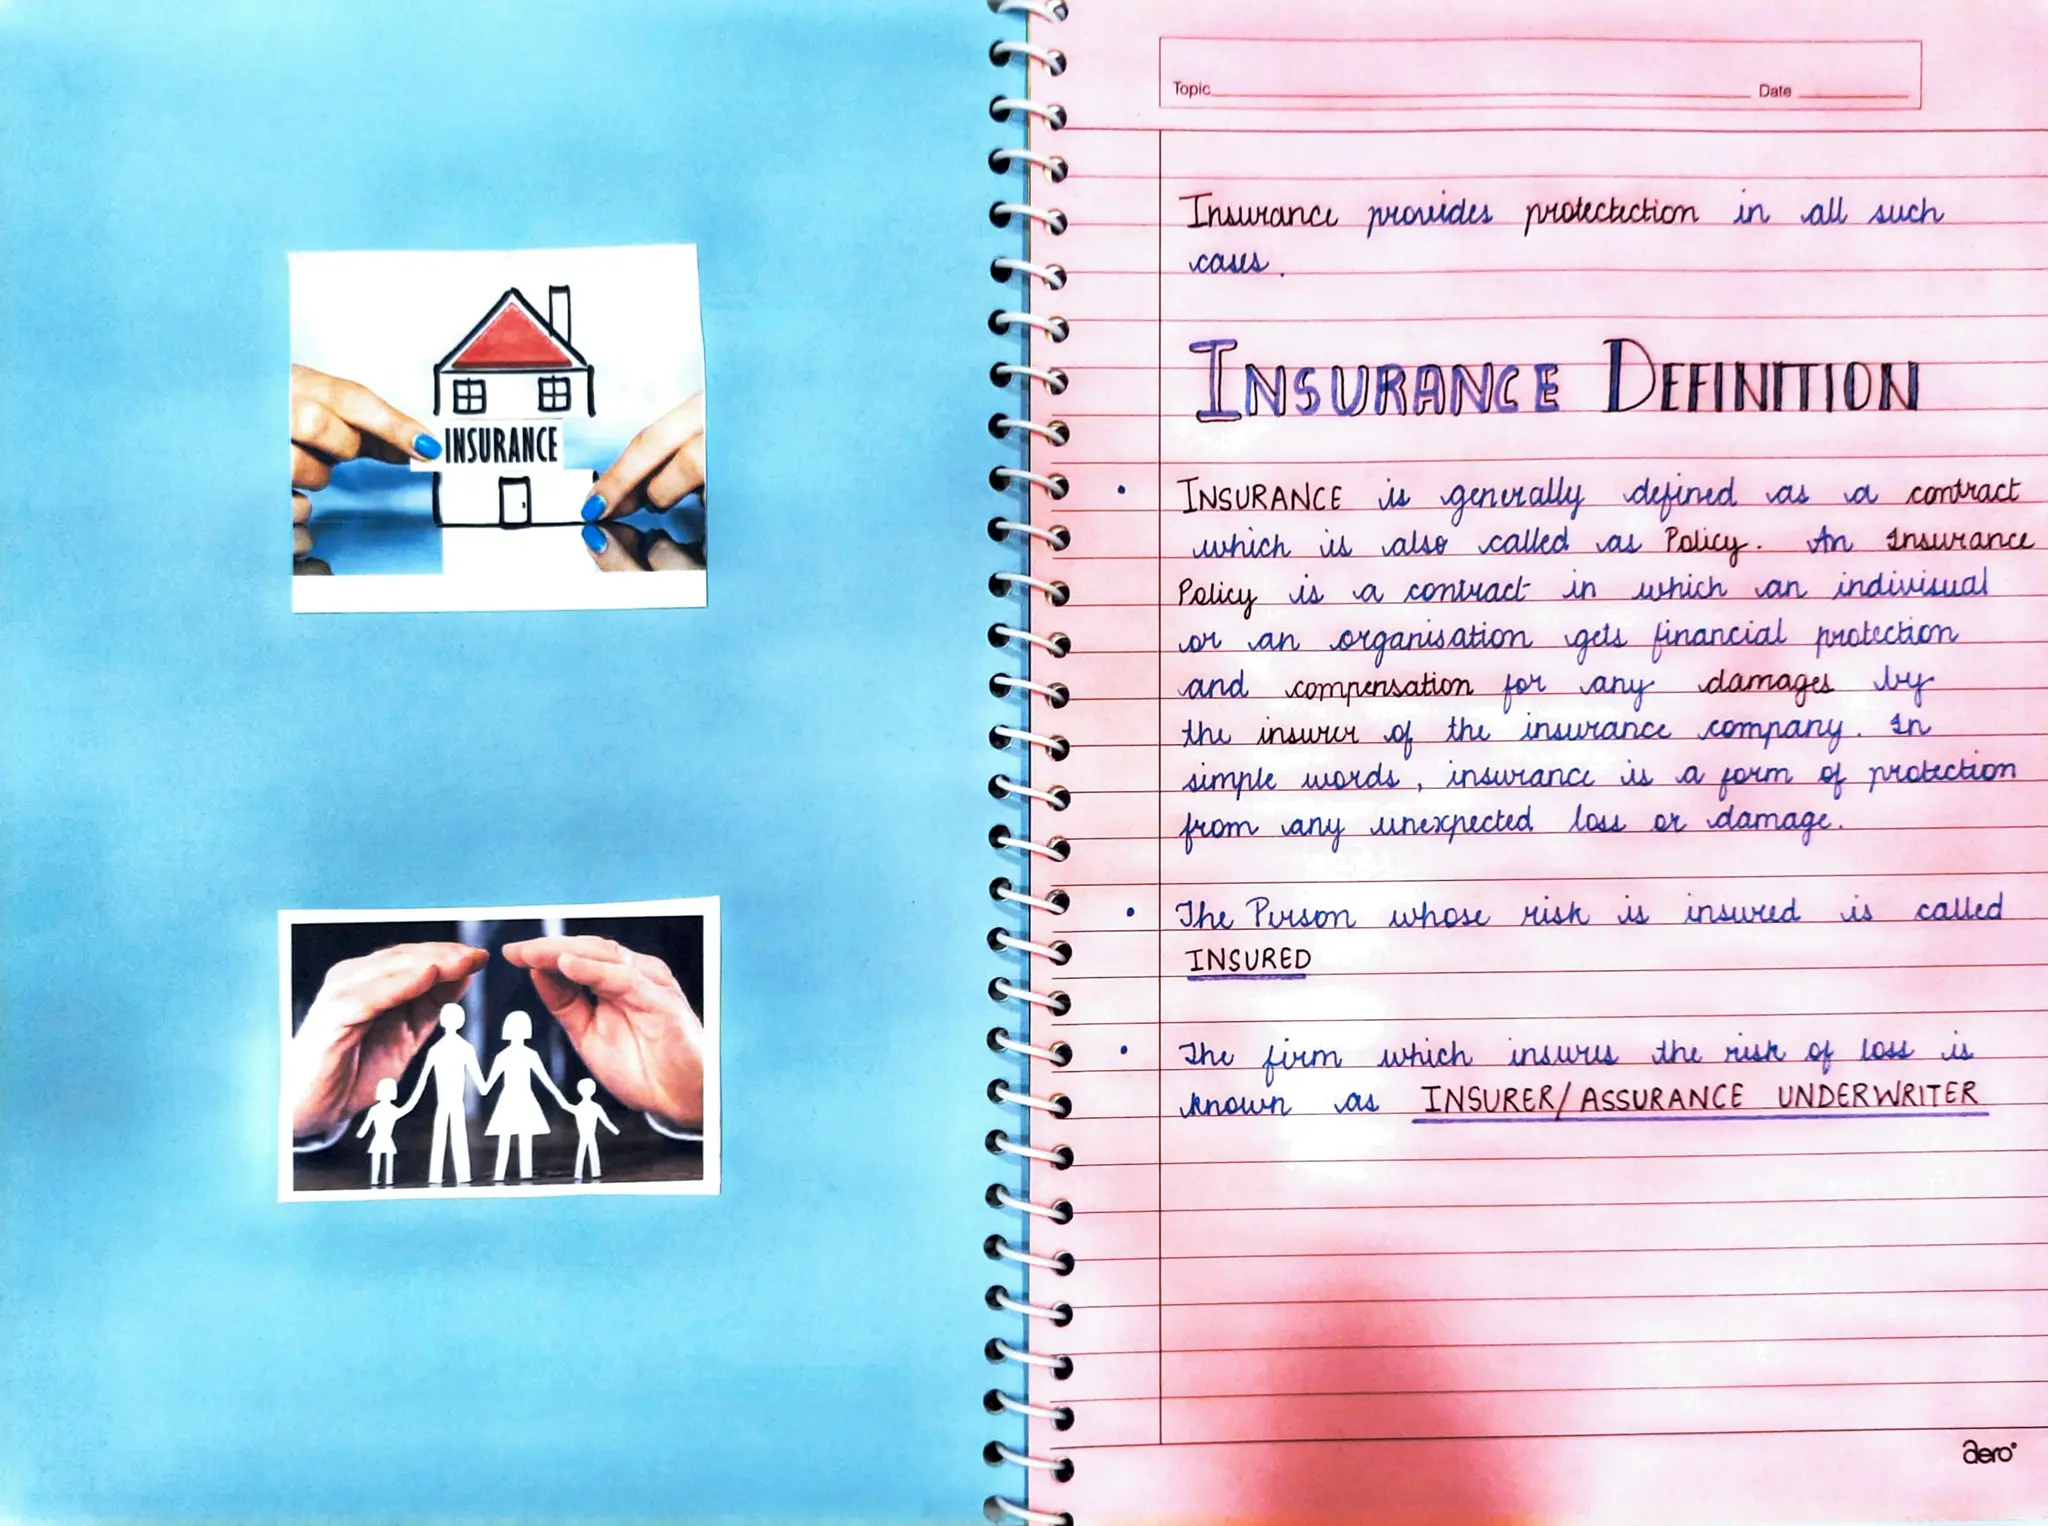 INSURANCE
Topic
Date
Insurance provides protectection in all such
cases.
INSURANCE DEFINITION
• INSURANCE is generally defined as a contract
which is also called as Policy. An Insurance
Policy is a contract in which an indivisual
or an organisation gets financial protection
and compensation for any damages by
the insurer of the insurance company. In
simple words, insurance is a form of protection
from any unexpected loss or damage.
• The Person whose risk is insured is called
INSURED
• The firm which insures the risk of loss is
known as INSURER/ASSURANCE UNDERWRITER
aero